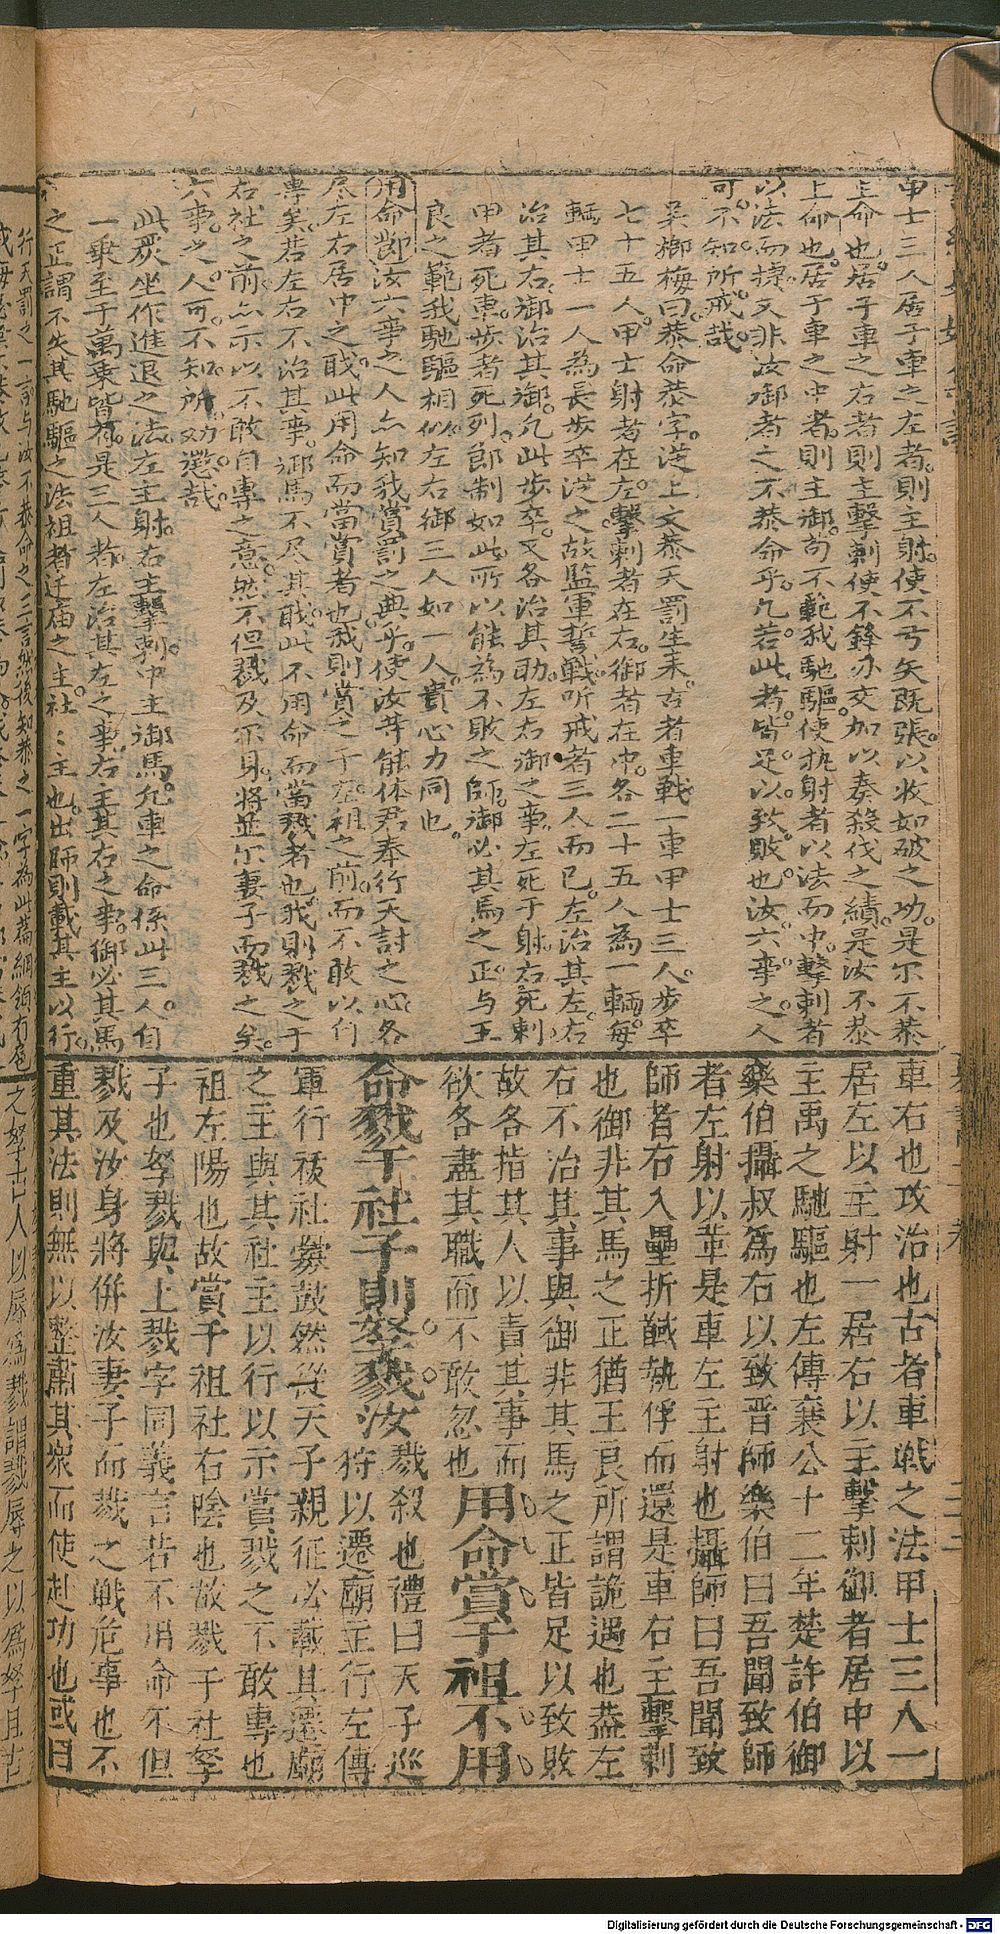 甲士三人居于車之左者則主射使不弓矢既張以收如破之功是尔不恭
上命也居于車之右者則主擊刺使不鋒刃交加以奏殺伐之績是汝不恭
上命也居于車之中者則主御苟不範我馳驅使執射者以法而中擊刺者
以法而揕又非汝御者之不恭命乎凡若此者皆足以致敗也汝六事之人
可不知所戒哉
吴鄉梅曰恭命恭字從上文恭天罰生来古者車戰一車甲士三人步卒
七十五人甲士射者在左擊刺者在右御者在中各二十五人為一輛每
輛甲士一人為長步卒從之故監軍誓戰听戒者三人而已左治其左右
治其右御治其御凡此步卒又各治其助左右御之事左死于射右死刺
甲者死車步者死列節制如此所以能為不敗之師御必其馬之正与王
良之範我馳驅相似左右御三人如一人貴心力同也
用命節汝六事之人亦知我賞罰之典乎使汝等能体君奉行天討之心各
尽左右居中之職此用命而當賞者也我則賞之于左祖之前而不敢以自
專矣若左右不治其事御馬不尽其職此不用命而當戮者也我則戮之于
右社之前亦示以不敢自專之意然不但戮及尔身將並尔妻子而戮之矣
六事之人可不知所以勸懲哉
此炭坐作進退之法左主射右主擊刺中主御馬凡車之命係此三人自
一乘至于萬乘皆有是三人者左治其左之事右主其右之事御必其馬
之正謂不失其馳驅之法祖者迁庙之主社ミ主也出師則載其主以行
車右也攻治也古者車戰之法甲士三人一
居左以主射一居右以主擊刺御者居中以
主禹之馳驅也左傳襄公十二年楚許伯御
樂伯攝叔爲右以致晋師樂伯曰吾聞致師
者左射以菆是車左主射也攝師曰吾聞致
師者右入壘折馘執俘而還是車右主擊刺
也御非其馬之正猶王良所謂詭遇也葢左
右不治其事與御非其馬之正皆足以致敗
故各指其人以責其事而
欲各盡其職而不敢忽也用命賞于祖不用
命戮于社予則孥戮汝戮殺也禮曰天子巡
狩以遷廟主行左傳
軍行祓社釁鼓然從天子親征必載其遷廟
之主與其社主以行以示賞戮之不敢專也
祖左陽也故賞于祖社右陰也故戮于社孥
子也孥戮與上戮字同義言若不用命不但
戮及汝身將併汝妻子而戮之戰危事也不
重其法則無以整肅其衆而使赴功也或曰
Digitalisierung gefördert durch die Deutsche Forschungsgemeinschaft - DFG